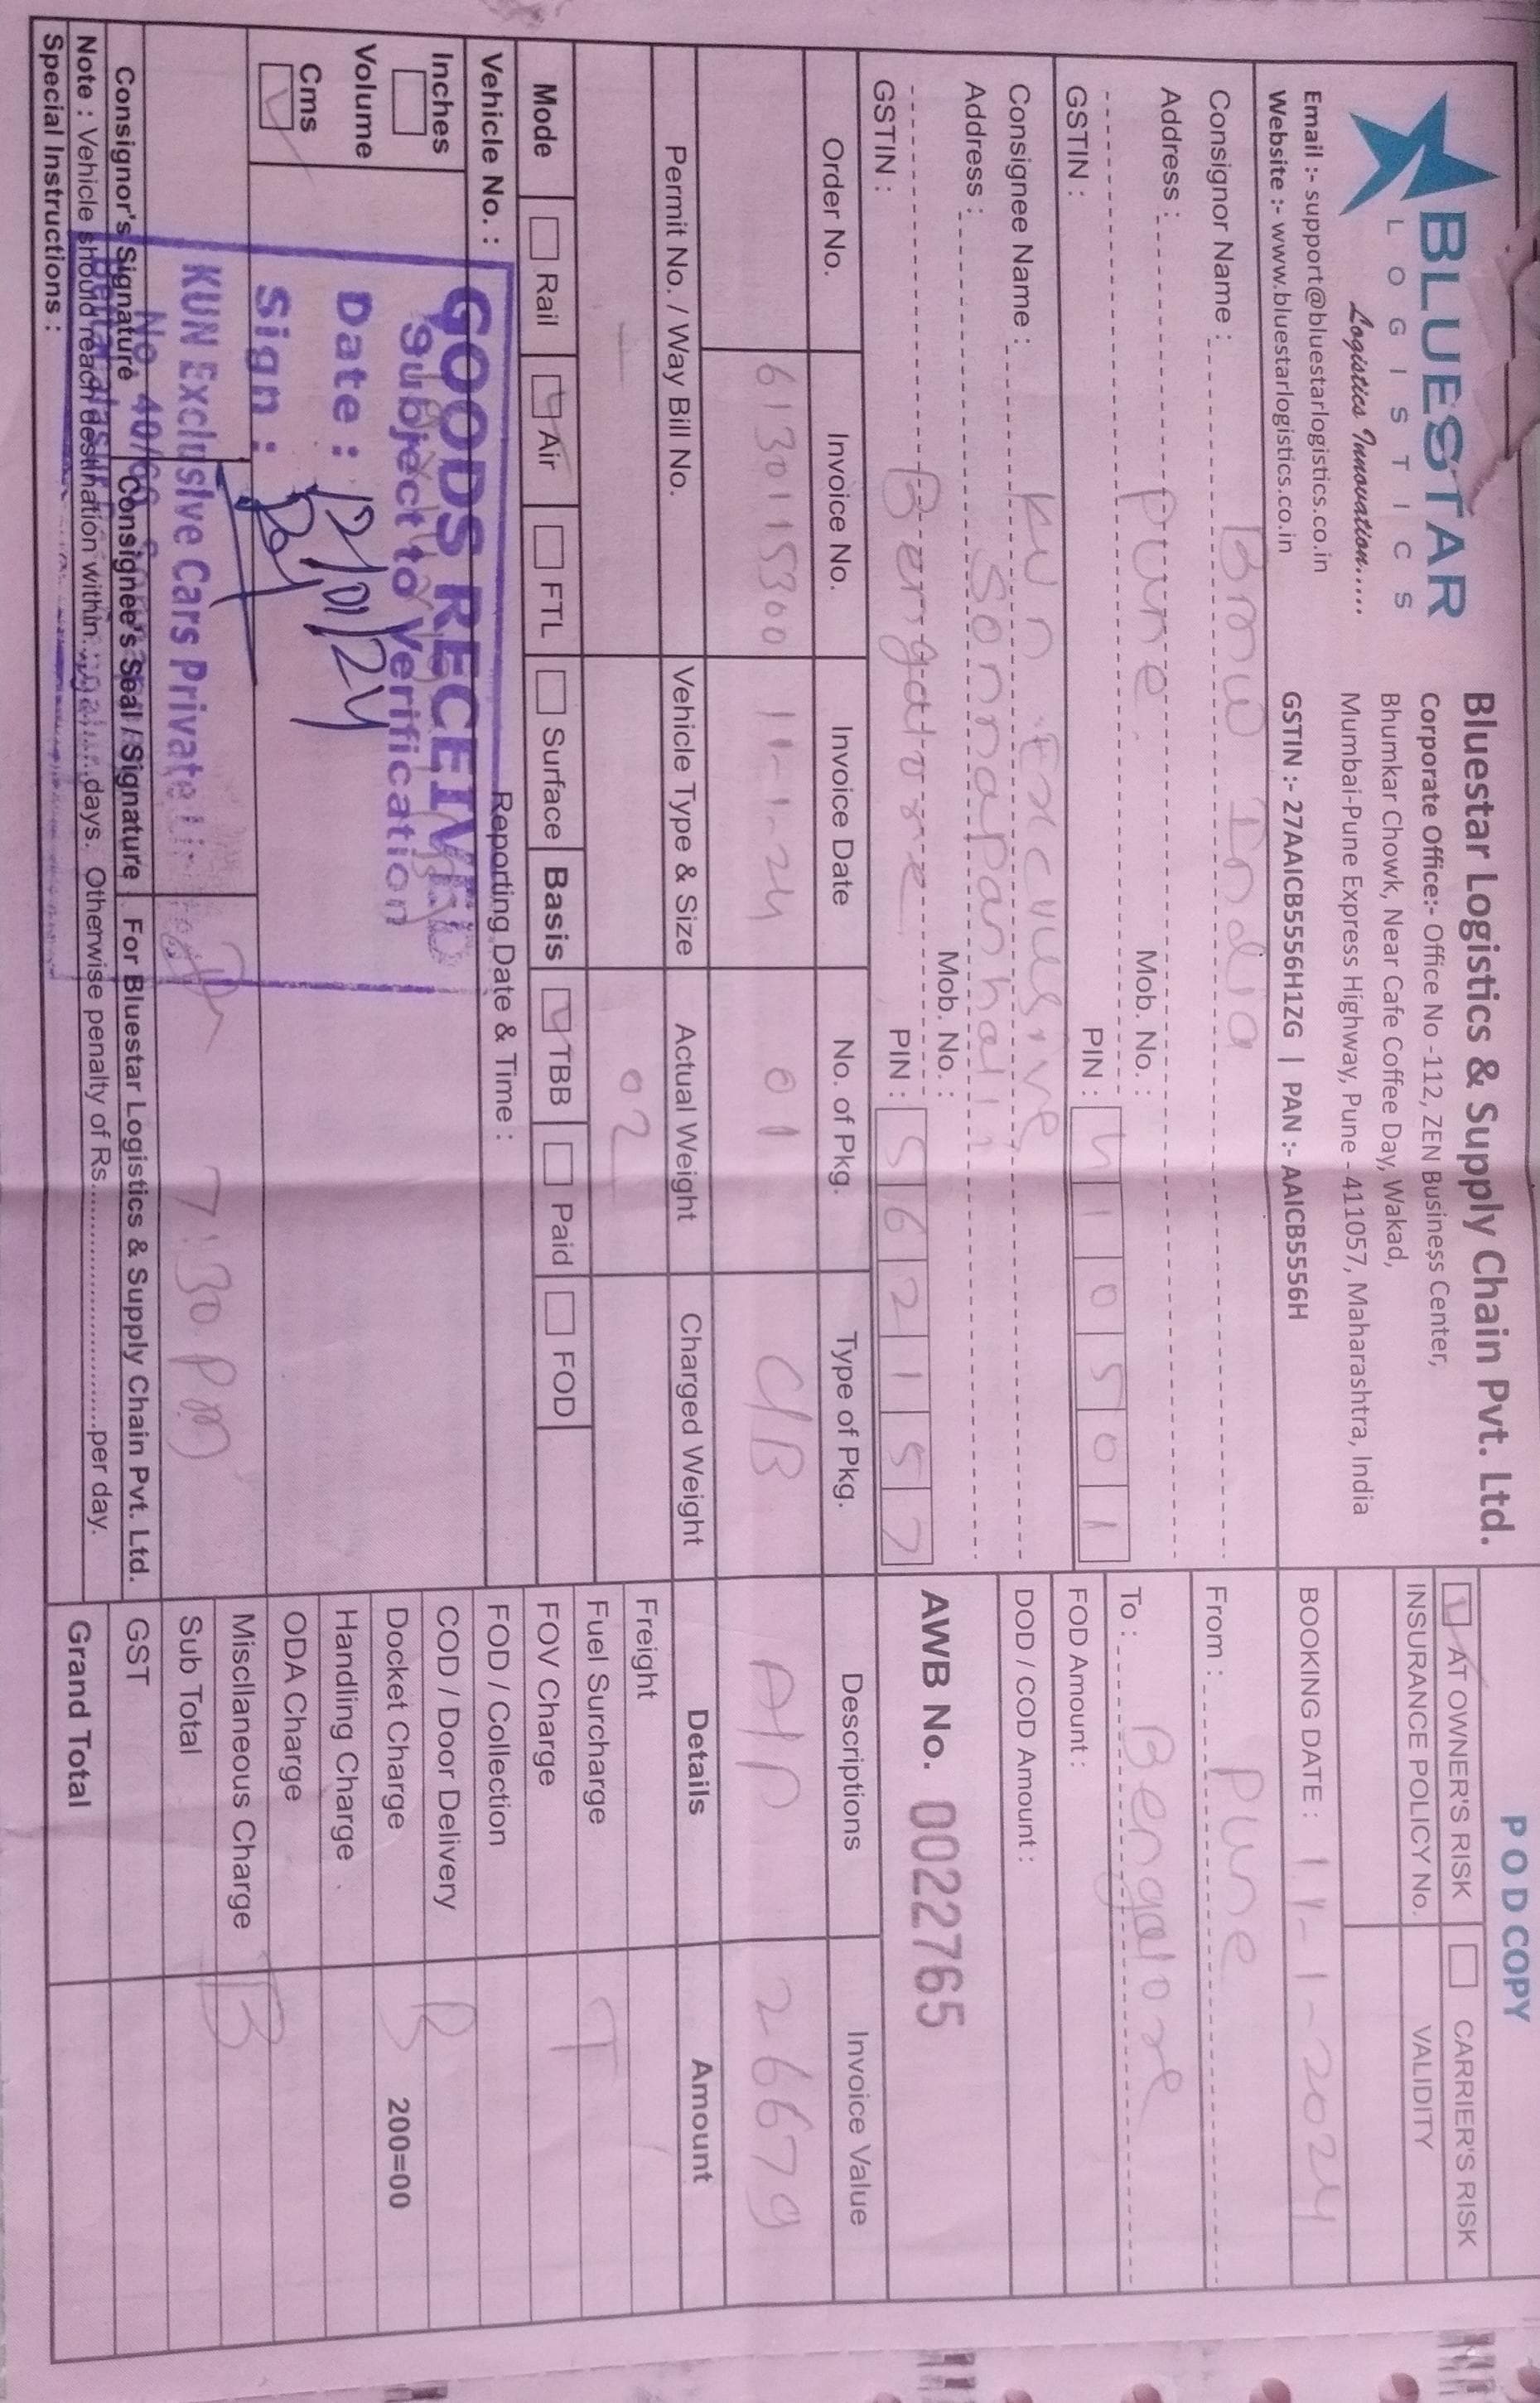 BLUESTAR
LOGISTICS
Logistics Innovation.....
Email :- support@bluestarlogistics.co.in
Website :- www.bluestarlogistics.co.in
Bluestar Logistics & Supply Chain Pvt. Ltd.
Corporate Office:- Office No -112, ZEN Business Center,
Bhumkar Chowk, Near Cafe Coffee Day, Wakad,
Mumbai-Pune Express Highway, Pune - 411057, Maharashtra, India
GSTIN :- 27AAICB5556H1ZG | PAN :- AAICB5556H
POD COPY
AT OWNER'S RISK CARRIER'S RISK
INSURANCE POLICY No. VALIDITY
BOOKING DATE : 11-1-2024
Consignor Name : BMW India
Address : Pune
Mob. No. :
GSTIN : PIN : 410501
From : Pune
To : Bengalore
FOD Amount :
DOD / COD Amount :
AWB No. 0022765
Consignee Name : KUN Exclusive
Address :
Mob. No. :
Bengalore
GSTIN : PIN : 562157
Order No. Invoice No. Invoice Date No. of Pkg. Type of Pkg. Descriptions Invoice Value
6130115300 11-1-24 01 C/B A/P 26679
Permit No. / Way Bill No. Vehicle Type & Size Actual Weight Charged Weight Details Amount
— 02
Mode Rail Air FTL Surface Basis TBB Paid FOD
Vehicle No. : Reporting Date & Time :
Inches
Volume
Cms
GOODS RECEIVED
Subject to Verification
Date : 12/01/24
Sign :
KUN Exclusive Cars Private Limited
No. 40/66,
7:30 PM
Freight
Fuel Surcharge T
FOV Charge
FOD / Collection
COD / Door Delivery B
Docket Charge 200=00
Handling Charge
ODA Charge
Miscllaneous Charge B
Sub Total
GST
Grand Total
Consignor's Signature Consignee's Seal / Signature For Bluestar Logistics & Supply Chain Pvt. Ltd.
Note : Vehicle should reach destination within.............days. Otherwise penalty of Rs.............................per day.
Special Instructions :